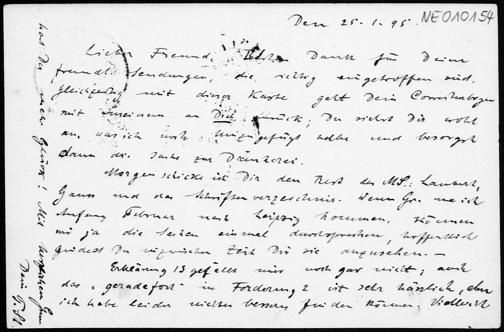 Den 25.1.95.
NEO10154
Lieber Freund, Besten Dank für Deine
freundl. Sendungen, die richtig eingetroffen sind.
Gleichzeitig mit dieser Karte geht Dein Correcturbogen
mit meinem an Dich zurück; Du siehst Dir wohl
an, was ich noch hinzugefügt habe und besorgst
dann die Sache zur Druckerei.
Morgen schicke ich Dir den Rest des MS.: Lambert,
Gauss und das Schriftenverzeichnis. Wenn
Anfang Februar nach Leipzig kommen, können
wir ja die Sachen einmal durchsprechen, hoffentlich
findest Du inzwischen Zeit Dir sie anzusehen. —
Erklärung 13 gefällt mir noch gar nicht; auch
das "geradefort" in Forderung 2 ist sehr hässlich, aber
ich habe leider nichts besseres finden können. Vielleicht
hast Du mehr Glück! Mit herzlichem Gruss
Dein